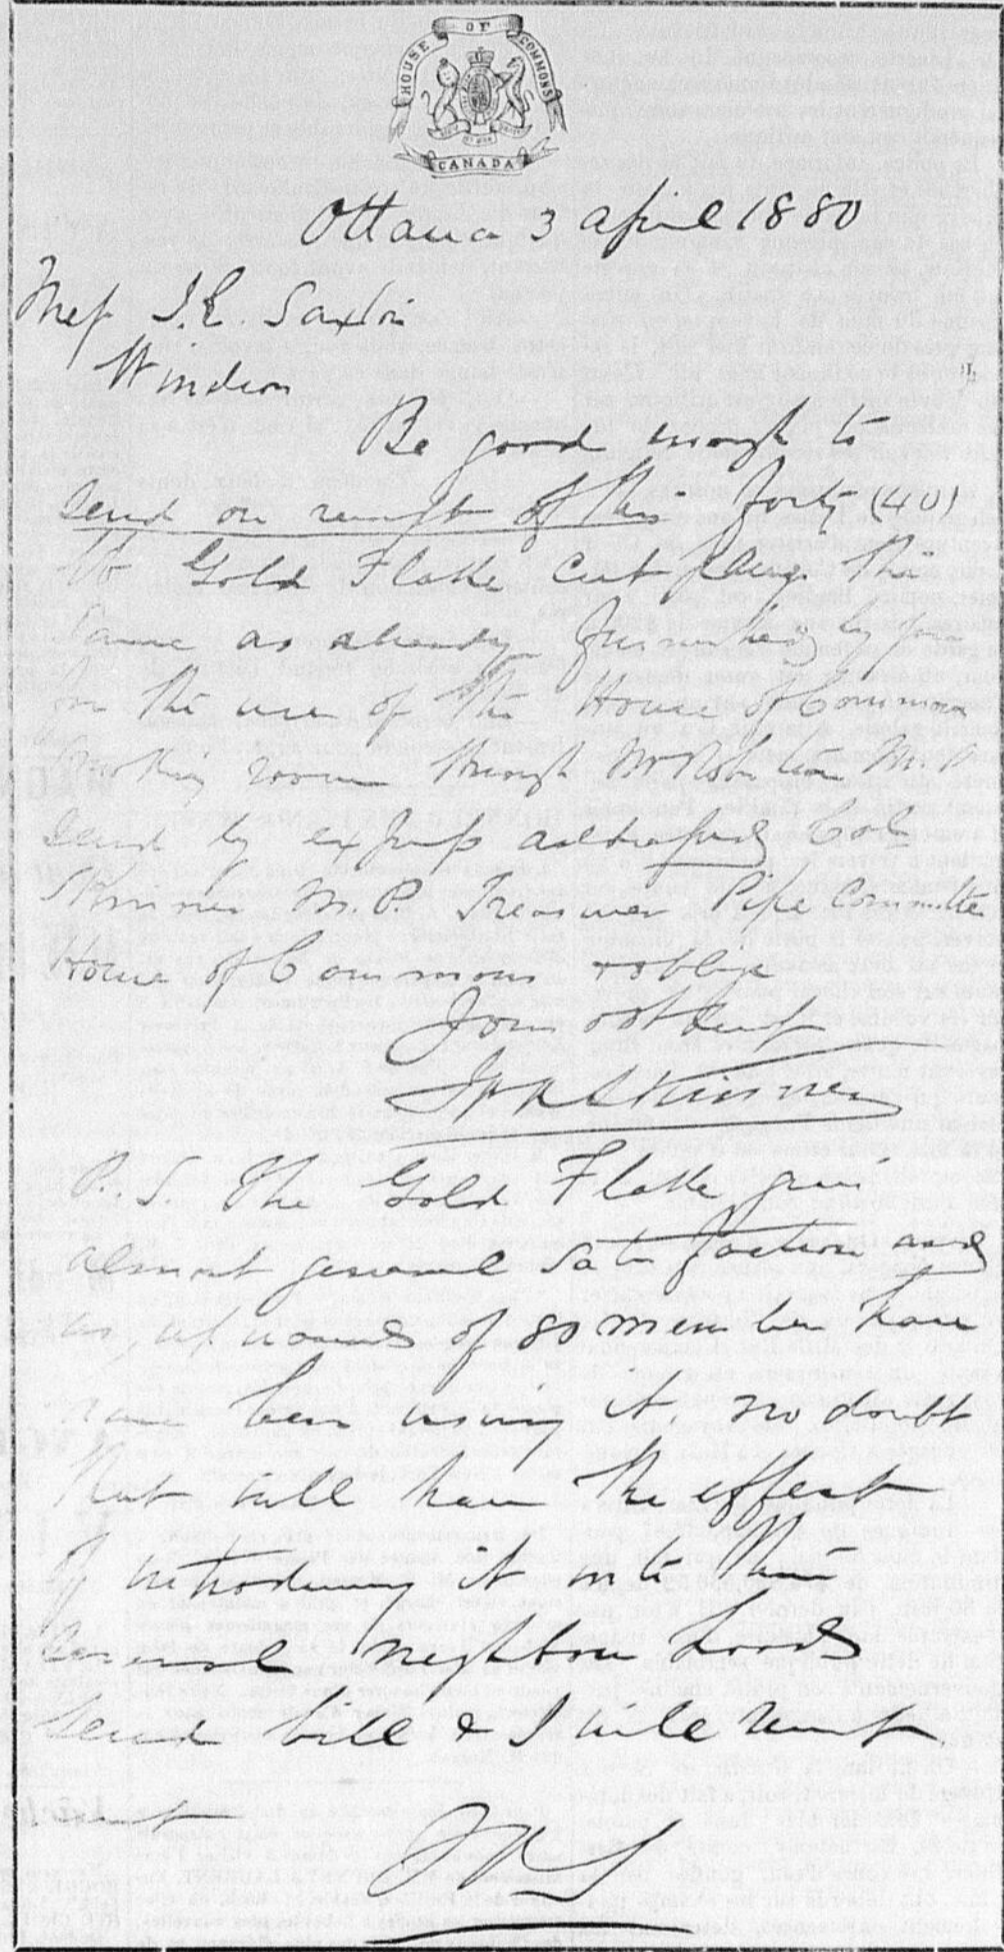 HOUSE OF COMMONS
CANADA
Ottawa 3 April 1880
Mess J. E. Saxton
Windsor
Be good enough to
send on receipt of this forty (40)
lb Gold Flake Cut plug the
same as already furnished by you
for the use of the House of Commons
Smoking room through Mr Robertson M.P.
send by express addressed Col
Skinner M.P. Treasurer Pipe Committee
House of Commons & oblige
Your obt Servt
J A Skinner
P.S. The Gold Flake gives
almost general satisfaction and
as upwards of 80 members have
have been using it, no doubt
that will have the effect
of introducing it into their
several neighbourhoods
Send bill & I will remit
JAS